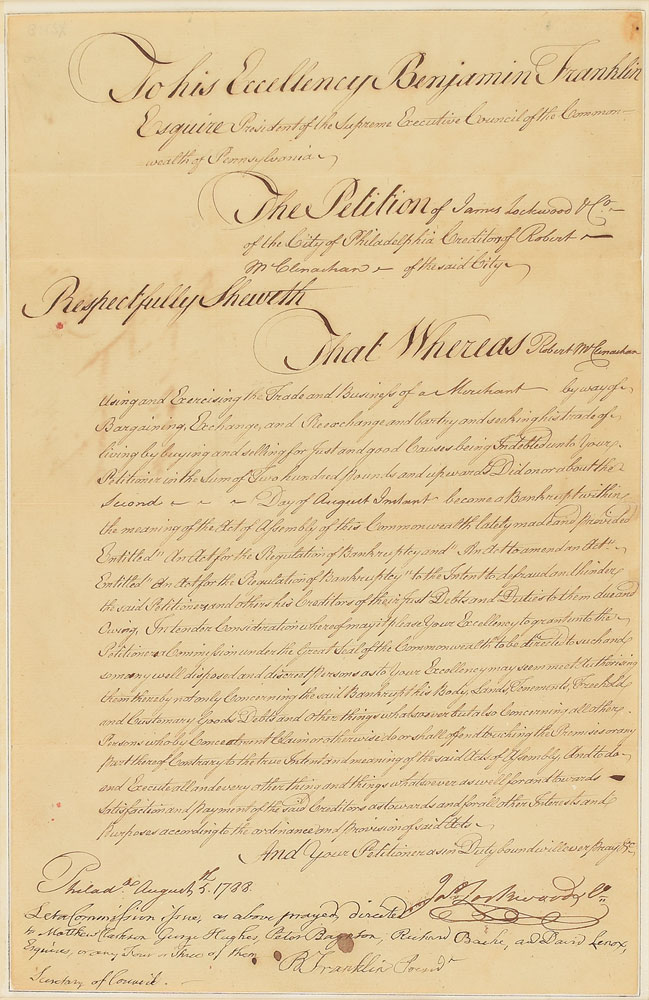 To his Excellency Benjamin Franklin
Esquire President of the Supreme Executive Council of the Common-
wealth of Pennsylvania
The Petition of James Lockwood & Co.
of the City of Philadelphia Creditors of Robert
McClenachan of the said City
Respectfully Sheweth
That Whereas Robert McClenachan
using and Exercising the Trade and Business of a Merchant by way of
Bargaining, Exchange, and Reexchange and bartry and seeking his trade of
living by buying and selling for Just and good Causes being Indebted unto Your
Petitioner in the Sum of Two hundred pounds and upwards Did on or about the
Second Day of August Instant become a Bankrupt within
the meaning of the Act of Assembly of this Commonwealth lately made and provided
Entitled "An Act for the Regulation of Bankruptcy and" An Act to amend an Act
Entitled "An Act for the Regulation of Bankruptcy" to the Intent to defraud and hinder
the said Petitioner and others his Creditors of their Just Debts and Duties to them due and
Owing, In tender Consideration whereof may it please Your Excellency to grant unto the
Petitioners a Commission under the Great Seal of the Commonwealth to be directed to such and
so many well disposed and discreet Persons as to Your Excellency may seem meet Authorising
them thereby not only Concerning the said Bankrupt his Body, Lands, Tenements, Freehold
and Customary Goods Debts and other things whatsoever but also Concerning all other
Persons who by Concealment Claim or otherwise do or shall offend touching the Premises or any
part thereof Contrary to the true Intent and meaning of the said Acts of Assembly And to do
and Execute all and every other thing and things whatsoever as well for and towards
Satisfaction and payment of the said Creditors as towards and for all other Interests and
Purposes according to the ordinance and Provision of said Acts
And Your Petitioner as in Duty bound will ever pray &c
Philada. August 5th. 1788
Jas Lockwood & Co
Let a Commission issue, as above prayed directed
to Matthew Clarkson George Hughes, Peter Baynton, Richard Bache, and David Lenox,
Esquires, or any Four or Three of them
B Franklin Presidt
Secretary of Council.